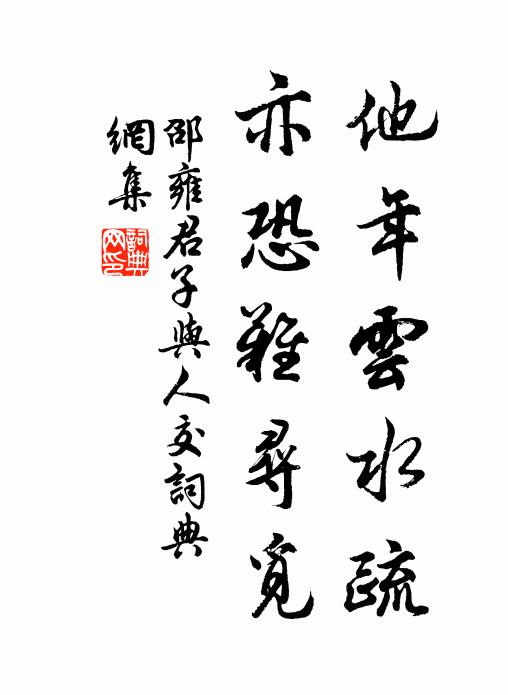 他年雲水疏
亦恐難尋覓
邵雍君子與人交詞典
網集
詞典網印